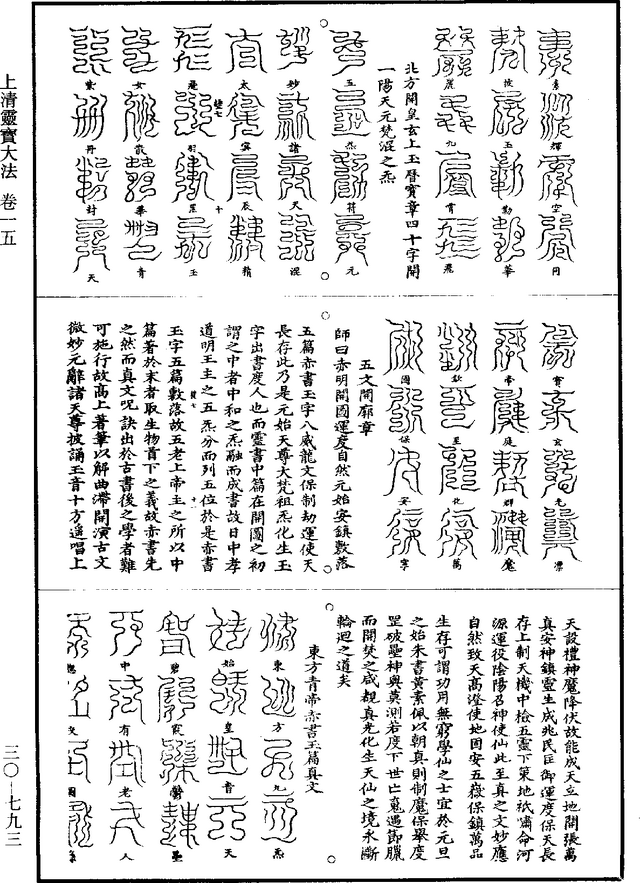 上清靈寶大法 卷一五
輝 空
按 玉 勒 華
麗 九 霄 飛
北方開皇玄上玉曆寶章四十字開
一陽天元梵混之炁
五 炁 符 元
妙 諸 天 混
太 冥 辰 精
羽 星 玉
女 散 華 青
紫 丹 封 天
寶 玄 光 漂
帝 庭 群 魔
欽 至 化 萬
國 保 安 寧
五文開廓章
師曰赤明開圖運度自然元始安鎮敷落
五篇赤書玉字八威龍文保制劫運使天
長存此乃是元始天尊大梵祖炁化生玉
字出書度人也而靈書中篇在開圖之初
謂之中者中和之炁融而成書故曰中孝
道明王主之五炁分而列五位於是赤書
玉字五篇敷落故五老上帝主之所以中
篇著於末者取生物首下之義故赤書先
之然而真文呪訣出於古書後之學者難
可施行故高上著筆以解曲滯開演古文
微妙元辭諸天尊披誦玉音十方遙唱上
天設禮神魔降伏故能成天立地開張萬
真安神鎮靈生成兆民匡御運度保天長
存上制天機中檢五靈下策地祇嘯命河
源運役陰陽召神使仙此至真之文妙應
自然致天高澄使地固安五嶽保鎮萬品
生存可謂功用無窮學仙之士宜於元旦
之始朱書黃素佩以朝真則制魔保舉度
罡破壘神與莫測若度下世亡魂遇節臘
而開焚之咸覩真光化生天仙之境永斷
輪迴之道矣
東方青帝赤書玉篇真文
東 方 九 炁
始 皇 青 天
碧 霞 鬱 壘
中 有 老 人
三〇—七九三